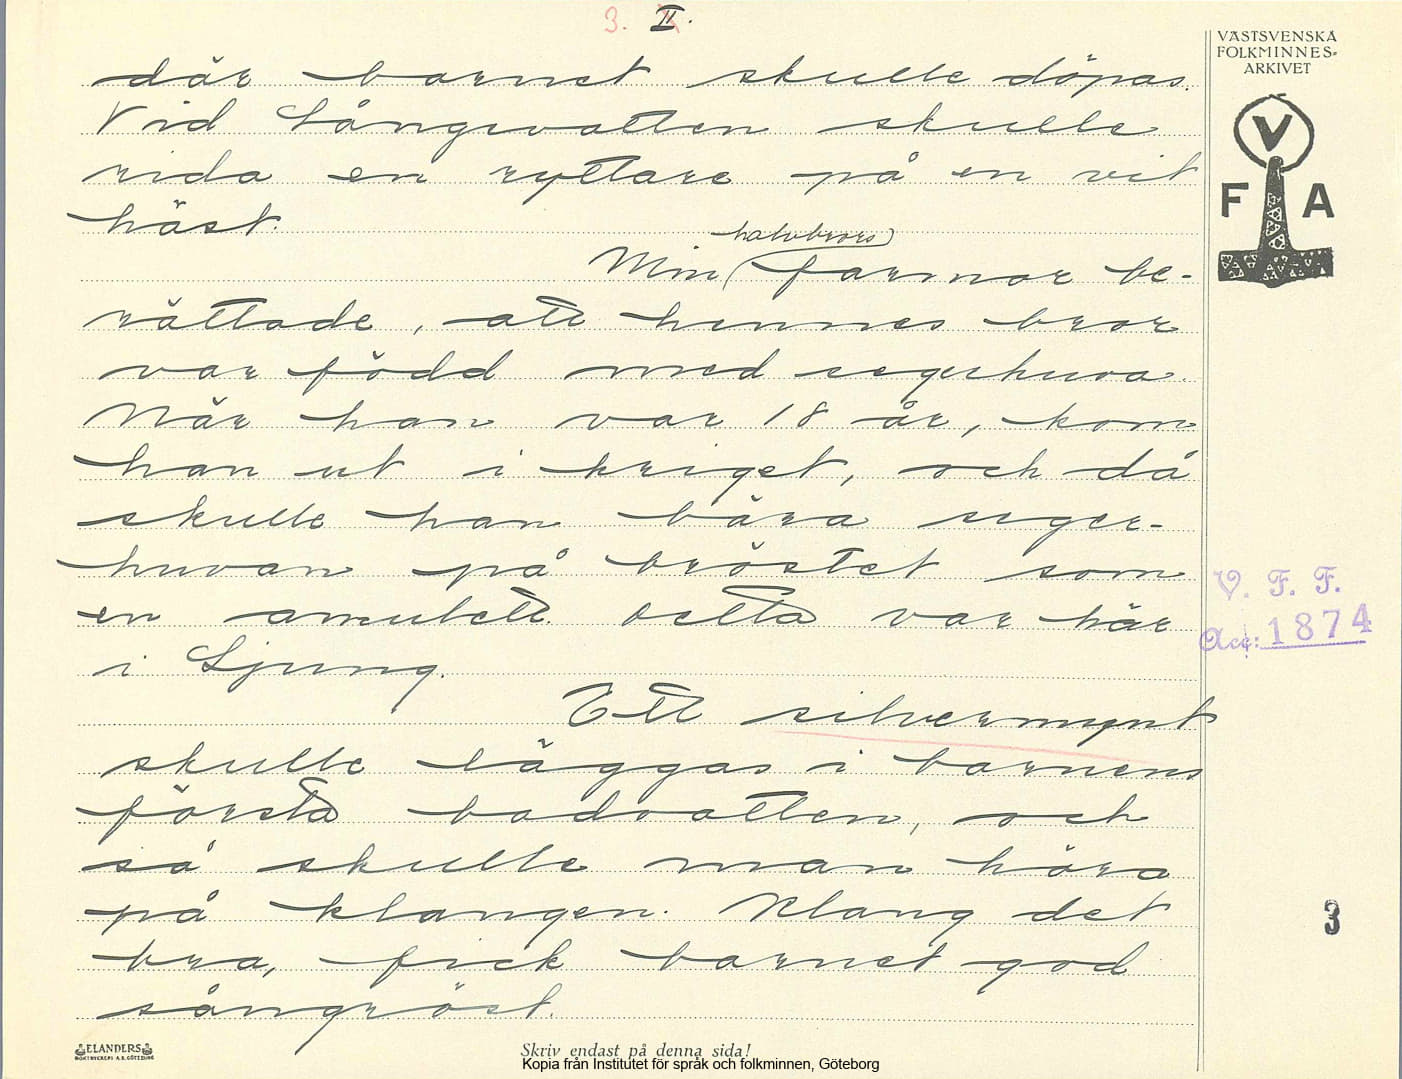 3. II.
VÄSTSVENSKA
FOLKMINNES-
ARKIVET
V
F A
där barnet skulle döpas.
Vid Långevatten skulle
rida en ryttare på en vit
häst.
halvbrors
Min farmor be-
rättade, att hennes bror
var född med segerhuva.
När han var 18 år, kom
han ut i kriget, och då
skulle han bära seger-
huvan på bröstet som
en amulett. Detta var här
i Ljung.
V. F. F.
Acc: 1874
Ett silvermynt
skulle läggas i barnens
första badvatten, och
så skulle man höra
på klangen. Klang det
bra, fick barnet god
sångröst.
3
ELANDERS
BOKTRYCKERI A.B. GÖTEBORG
Skriv endast på denna sida!
Kopia från Institutet för språk och folkminnen, Göteborg